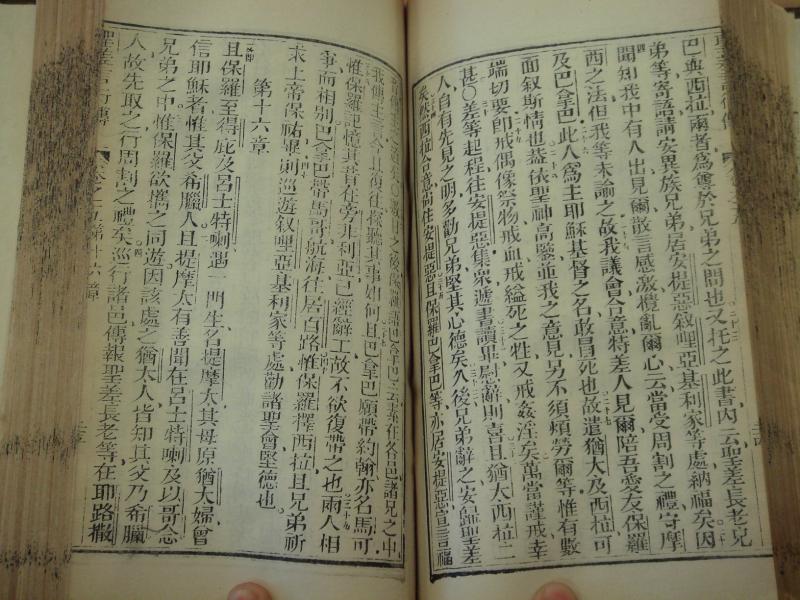 巴與西拉兩者爲會於兄弟之間也又托之此書內云聖差長老兄
弟等寄語請安異族兄弟居安提惡叙哩亞基利家等處納福矣因
聞知我中有人出見爾散言感激攪亂爾心云當受周割之禮守摩
西之法但我等未諭之故我議會合意特差人見爾陪吾愛友保羅
及巴拿巴此人爲主耶穌基督之名敢冒死也故遣猶大及西拉可
面叙斯情也葢依聖神高鑒並我之意見另不須煩勞爾等惟有數
端切要卽戒偶像祭物戒血戒縊死之牲又戒姦淫矣萬當謹戒幸
甚〇差等起程往安提惡集衆遞書讀畢慰辭則喜且猶大西拉二
人自有先見之明多勸兄弟堅其心德矣久後兄弟辭之安歸聖差
矣然西拉合意尚住安提惡且保羅巴拿巴等亦居安提惡宣言福
惟保羅記憶其昔在旁非利亞已經辭工故不欲復帶之也兩人相
爭而相別巴拿巴帶馬哥航海往居百路惟保羅擇西拉且兄弟祈
求上帝保祐畢則巡遊叙哩亞基利家等處勸諸聖會堅德也
第十六章
且保羅至得庇及呂士特喇遇一門生名提摩太其母原猶大婦曾
信耶穌者惟其父希臘人且提摩太有善聞在呂士特喇及以哥念
兄弟之中惟保羅欲攜之同遊因該處之猶太人皆知其父乃希臘
人故先取之行周割之禮矣巡行諸邑傳報聖差長老等在耶路撒